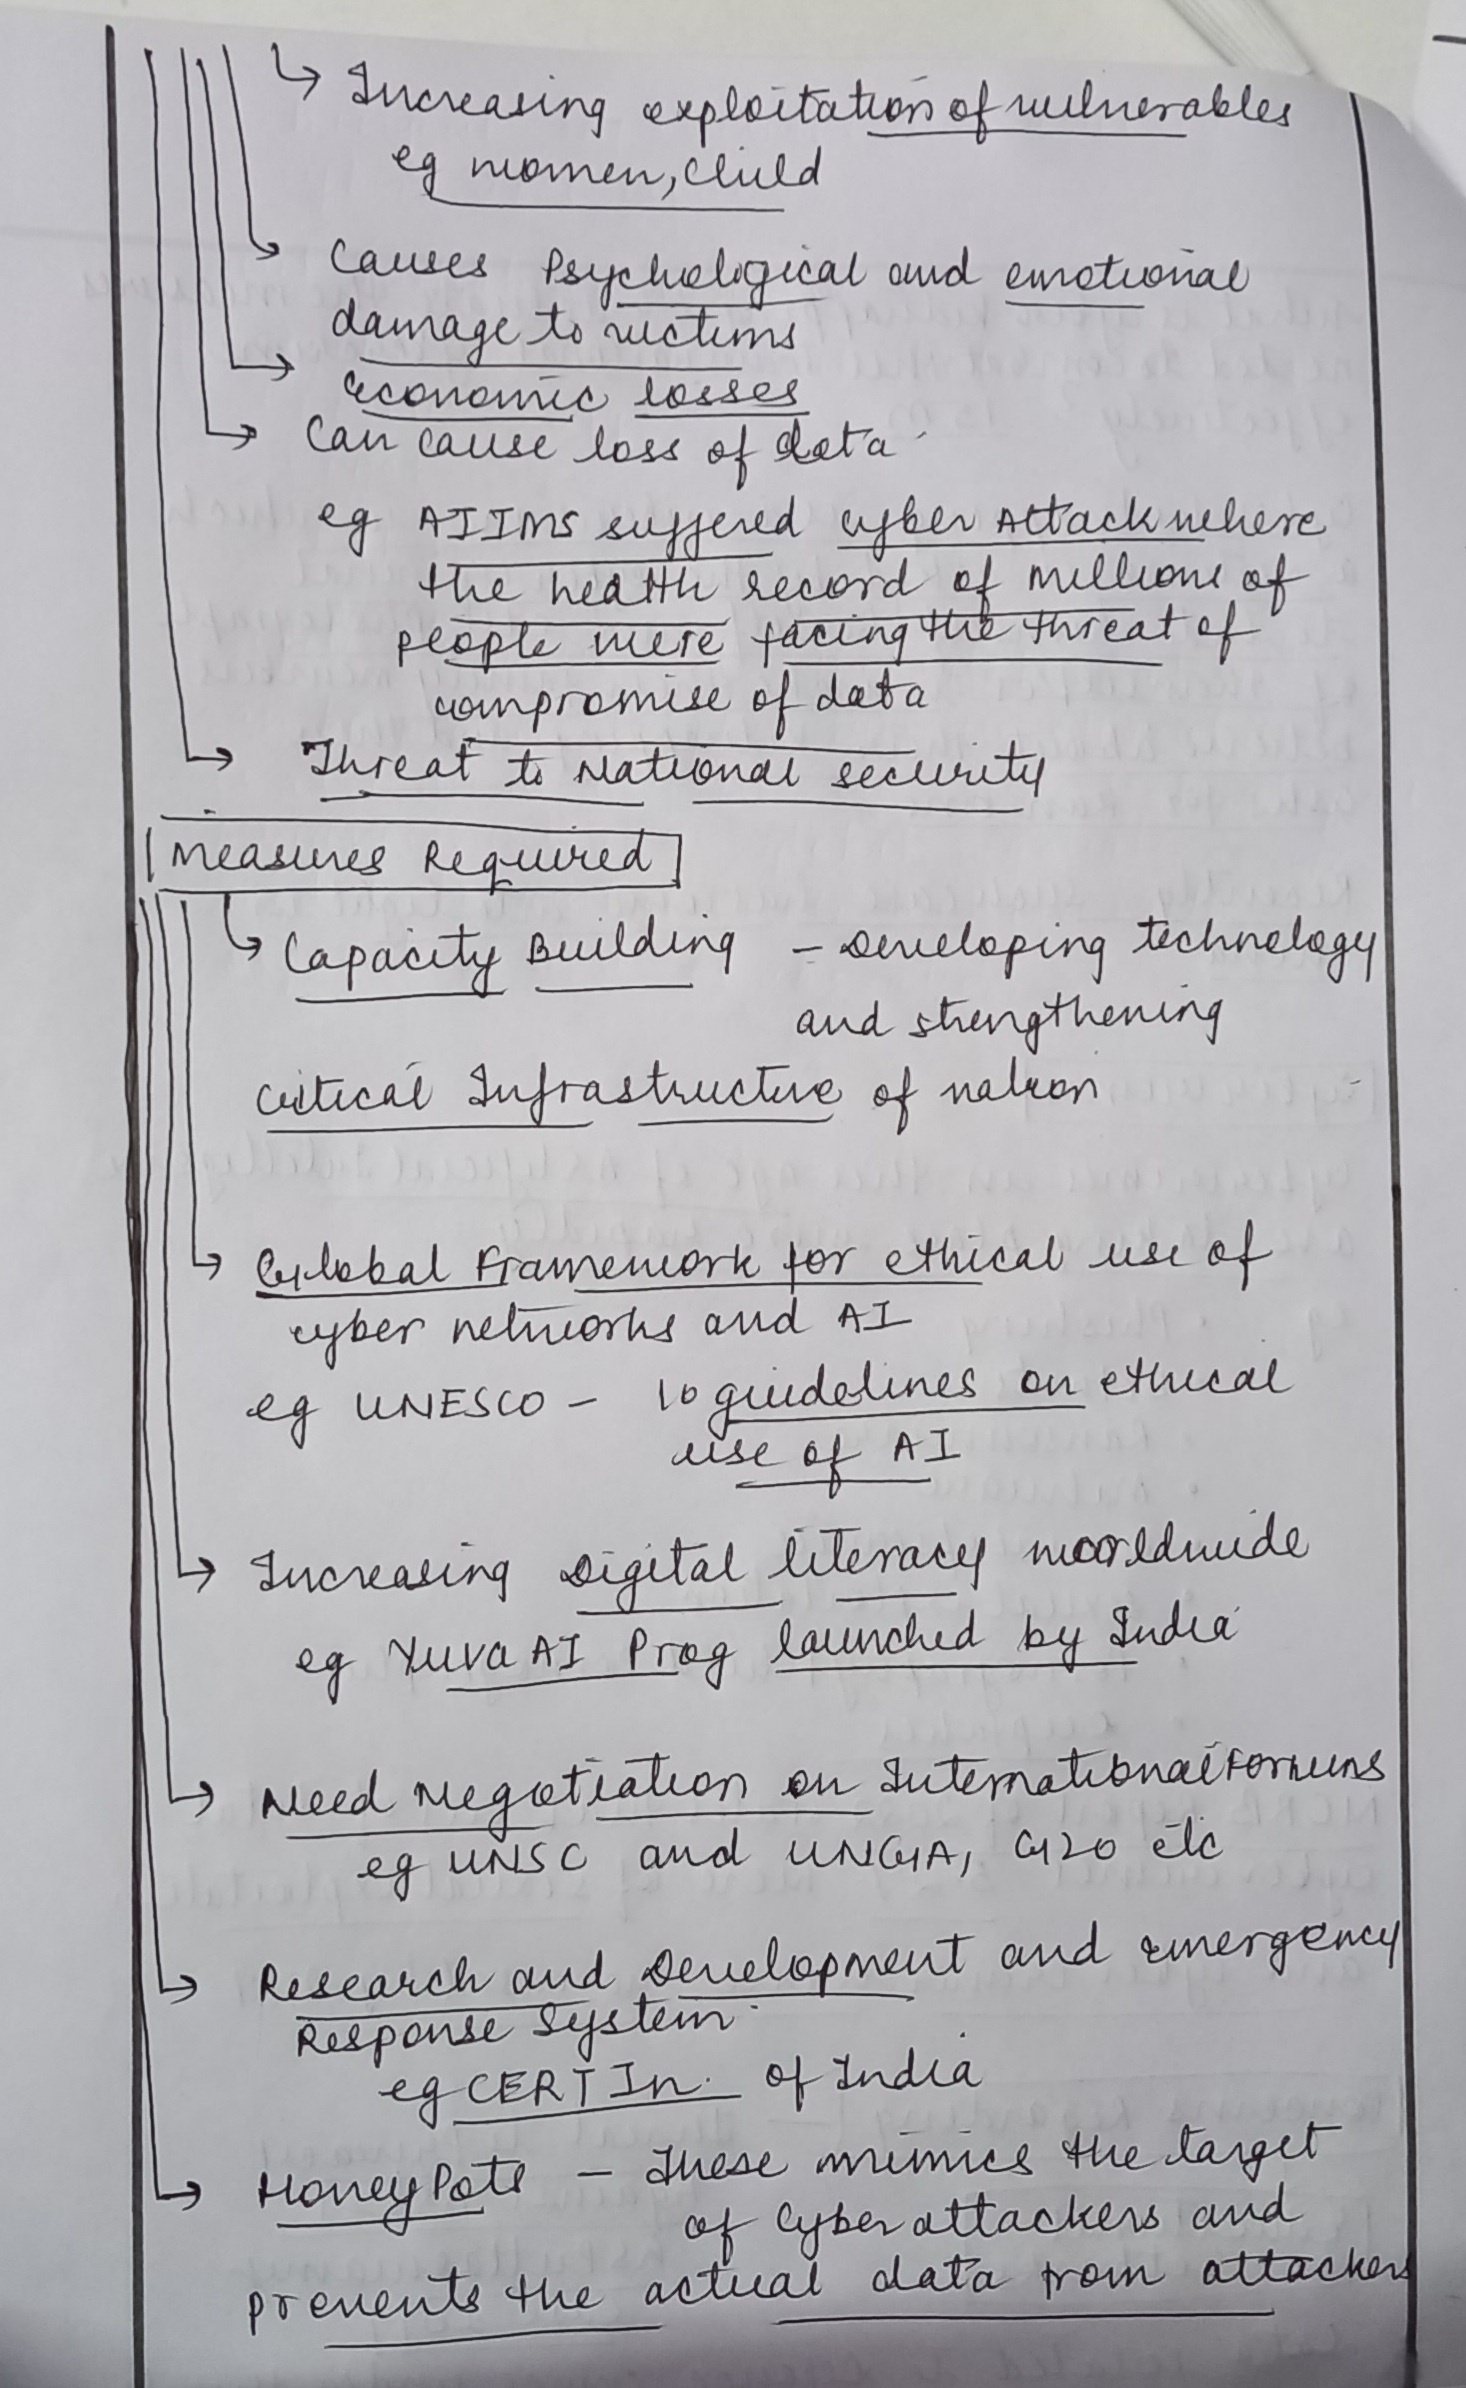 Increasing exploitation of vulnerables
eg women, child
Causes Psychological and emotional
damage to victims
economic losses
Can cause loss of data
eg AIIMS suffered cyber Attack where
the health record of millions of
people were facing the threat of
compromise of data
Threat to National security
Measures Required
Capacity Building – Developing technology
and strengthening
critical Infrastructure of nation
Global Framework for ethical use of
cyber networks and AI
eg UNESCO – 10 guidelines on ethical
use of AI
Increasing Digital literacy worldwide
eg Yuva AI Prog launched by India
Need Negotiation on International Forums
eg UNSC and UNGA, G20 etc
Research and Development and emergency
Response System.
eg CERT In. of India
Honey Pots – These mimics the target
of Cyber attackers and
prevents the actual data from attackers